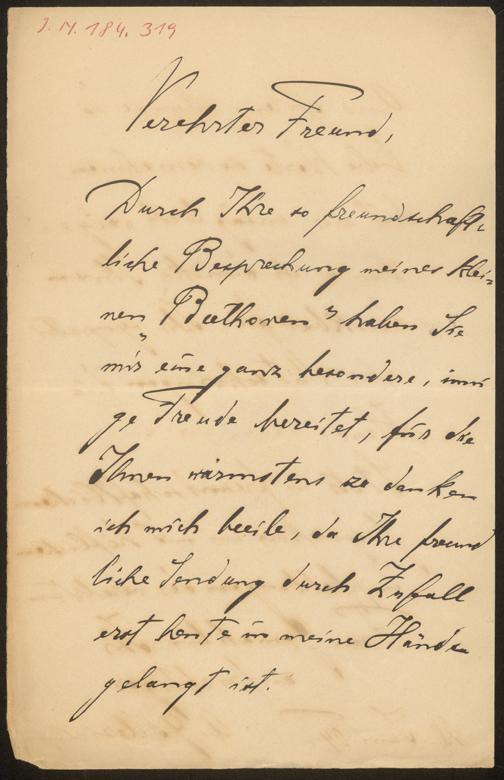 J. N. 184.319
Verehrter Freund,
Durch Ihre so freundschaft-
liche Besprechung meines klei-
nen „Beethoven" haben Sie
mir eine ganz besondere, inni
ge Freude bereitet, für die
Ihnen wärmstens zu danken
ich mich beeile, da Ihre freund
liche Sendung durch Zufall
erst heute in meine Hände
gelangt ist.